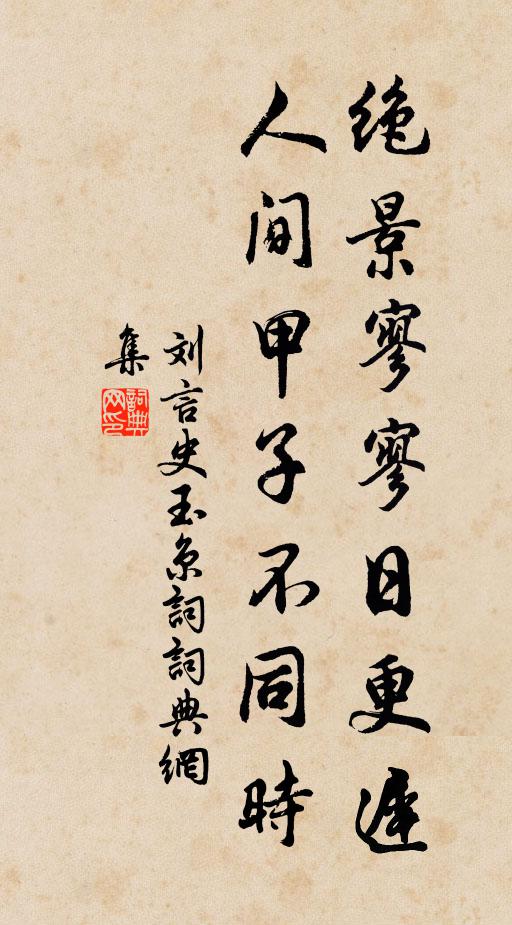 绝景寥寥日更迟
人间甲子不同時
刘言史玉京詞詞典網
集
詞典网印